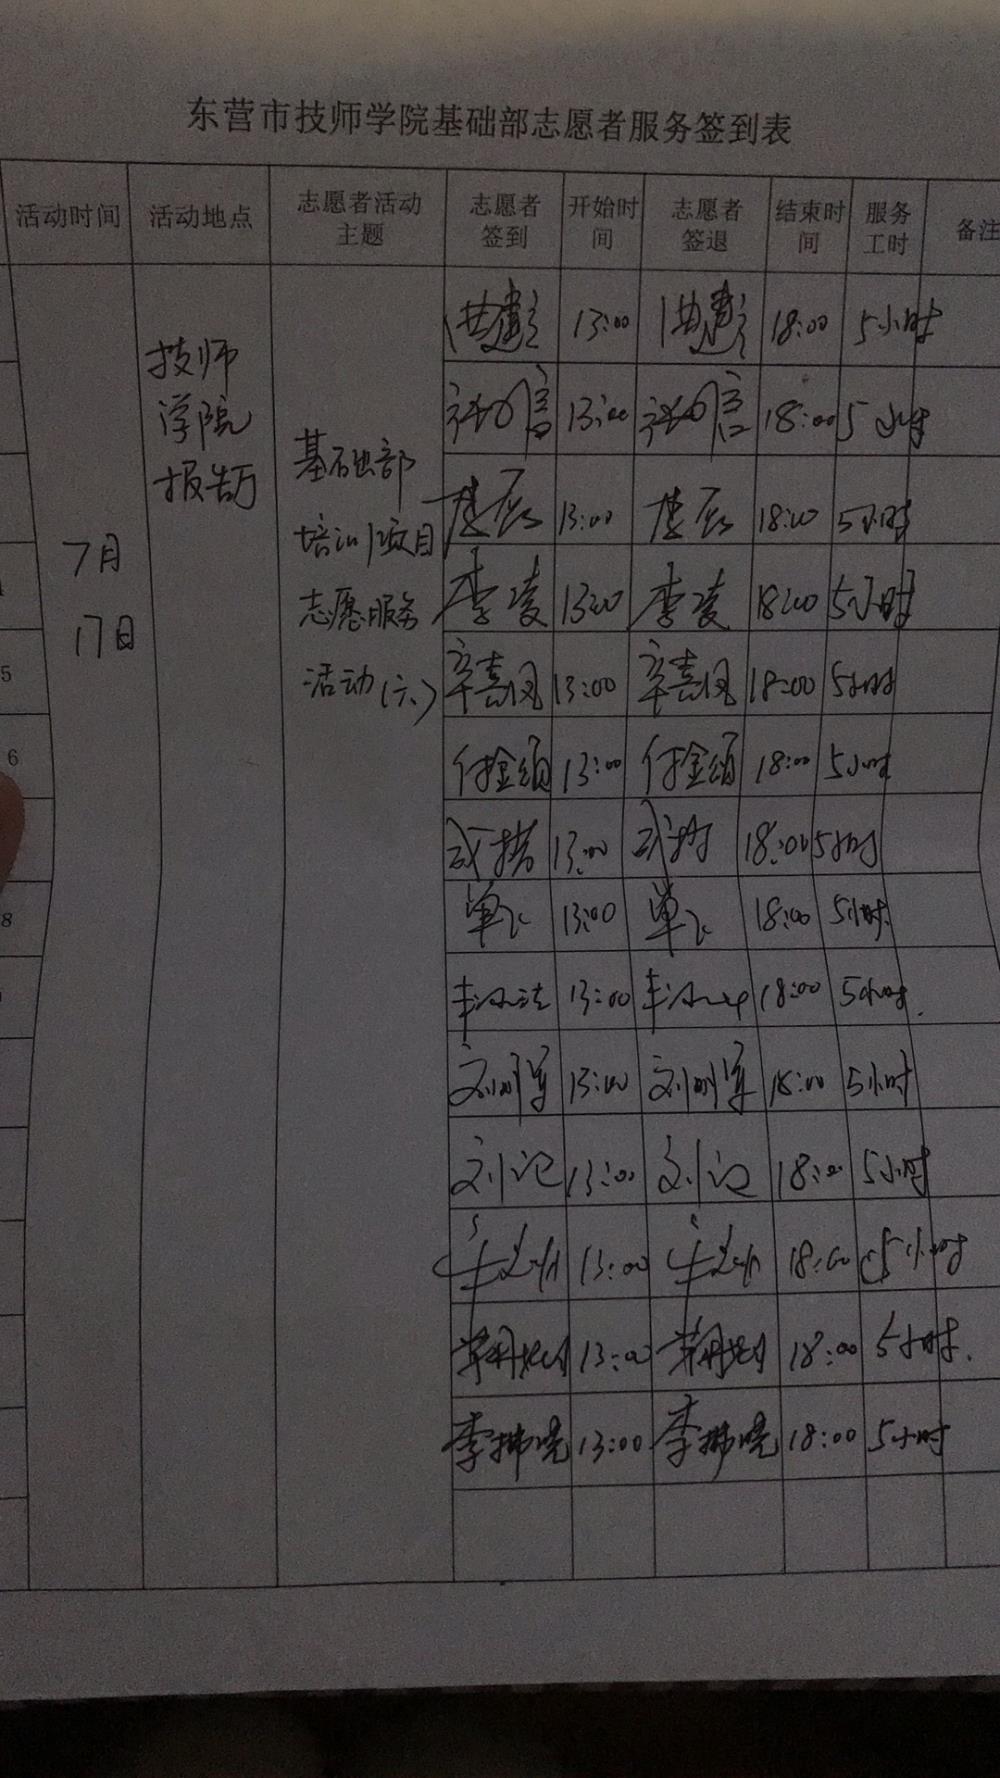 东营市技师学院基础部志愿者服务签到表
活动时间 活动地点 志愿者活动主题 志愿者签到 开始时间 志愿者签退 结束时间 服务工时 备注
7月17日
技师学院报告厅
基础部培训项目志愿服务活动(六)
13:00 18:00 5小时
13:00 18:00 5小时
李辰 13:00 李辰 18:00 5小时
李凌 13:00 李凌 18:00 5小时
5 辛喜凤 13:00 辛喜凤 18:00 5小时
6 付金颂 13:00 付金颂 18:00 5小时
13:00 18:00 5小时
8 13:00 18:00 5小时
13:00 18:00 5小时
刘刚军 13:00 刘刚军 18:00 5小时
刘记 13:00 刘记 18:00 5小时
13:00 18:00 5小时
13:00 18:00 5小时.
李拂晓 13:00 李拂晓 18:00 5小时